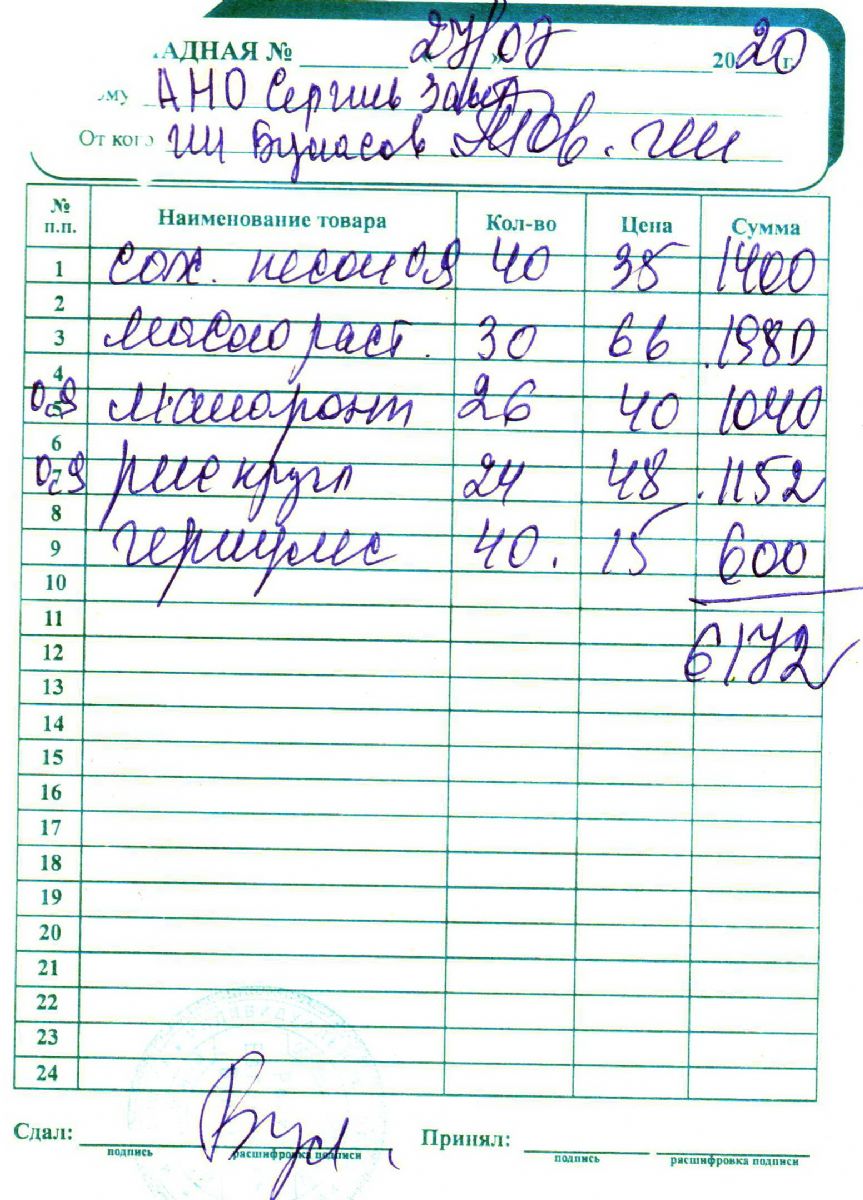 АДНАЯ № 27/07 2020 г.
ому АНО Сергиев
От кого ИП Бумасов
№ п.п. Наименование товара Кол-во Цена Сумма
1 сах. песок 0,9 40 35 1400
2
3 масло раст. 30 66 1980
4
0,9 5 макарон 26 40 1040
6
0,9 7 рис кругл 24 48 1152
8
9 геркулес 40. 15 600
10
11
12 6172
13
14
15
16
17
18
19
20
21
22
23
24
Сдал: Принял:
подпись расшифровка подписи подпись расшифровка подписи